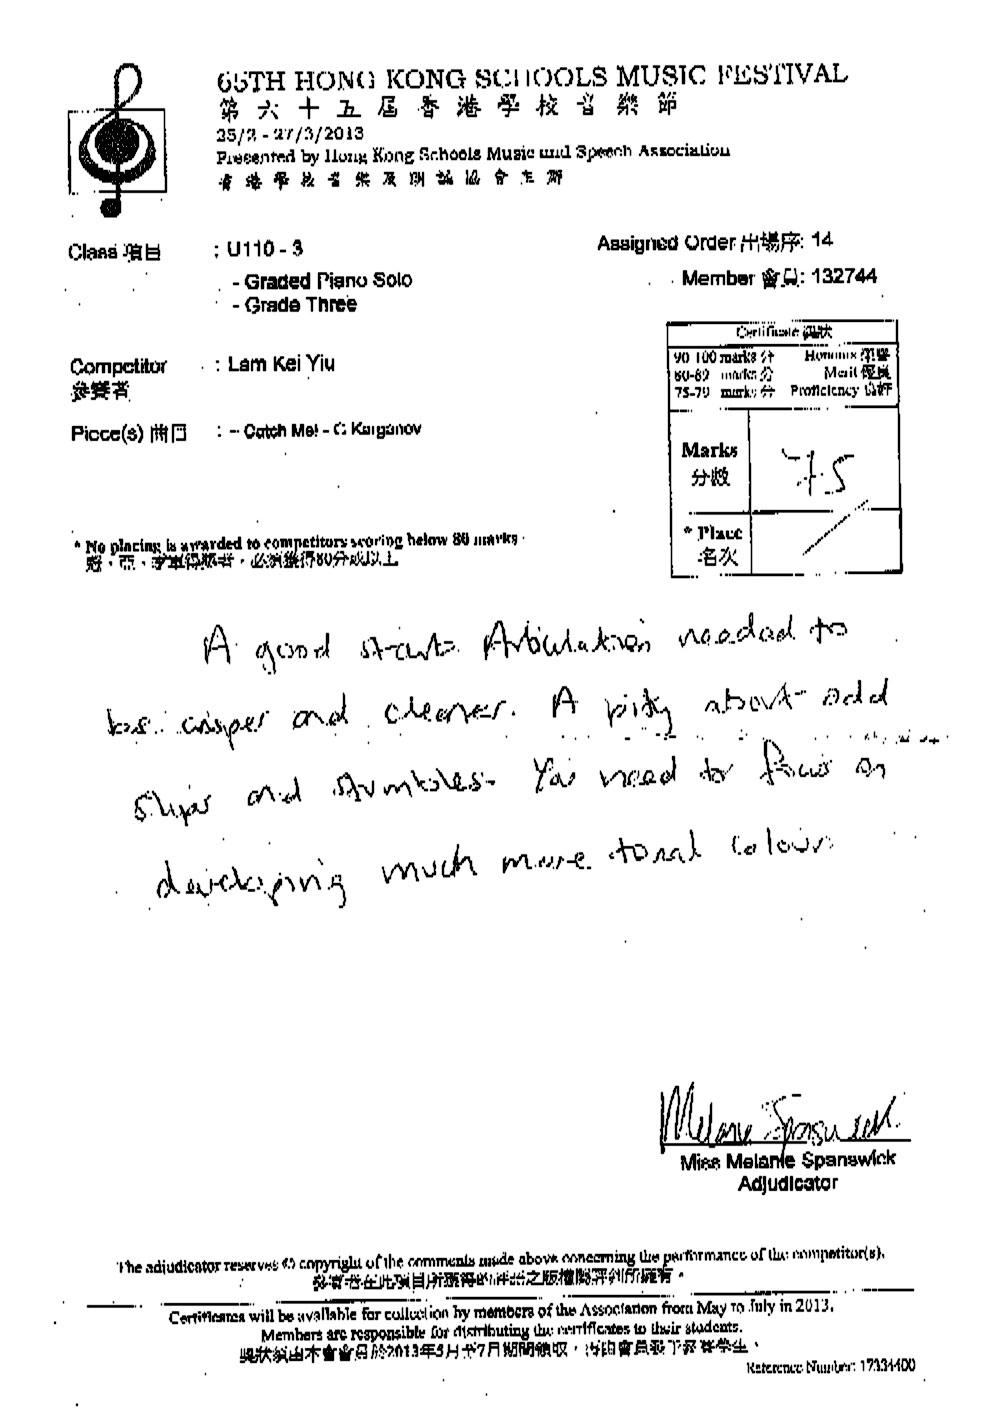 65TH HONG KONG SCHOOLS MUSIC FESTIVAL
第六十五屆香港學校音樂節
25/2 - 27/3/2013
Presented by Hong Kong Schools Music and Speech Association
香港學校音樂及朗誦協會主辦
Class 項目 : U110 - 3
Assigned Order 出場序: 14
- Graded Piano Solo
Member 會員: 132744
- Grade Three
Certificate 獎狀
90-100 marks 分 Honours 榮譽
80-89 marks 分 Merit 優良
75-79 marks 分 Proficiency 良好
Competitor : Lam Kei Yiu
參賽者
Piece(s) 曲目 : -- Catch Me! - G Karganov
Marks 75
分數
* Place
名次
* No placing is awarded to competitors scoring below 80 marks
冠、亞、季軍得獎者,必須獲得80分或以上
A good start. Articulation needed to
be crisper and cleaner. A pity about odd
slips and stumbles. You need to focus on
developing much more tonal colour.
Melanie Spanswick
Miss Melanie Spanswick
Adjudicator
The adjudicator reserves © copyright of the comments made above concerning the performance of the competitor(s).
參賽者在此項目所獲得的評語之版權屬評判所擁有。
Certificates will be available for collection by members of the Association from May to July in 2013.
Members are responsible for distributing the certificates to their students.
獎狀須由本會會員於2013年5月至7月期間領取,再由會員發予參賽學生。
Reference Number: 17334400